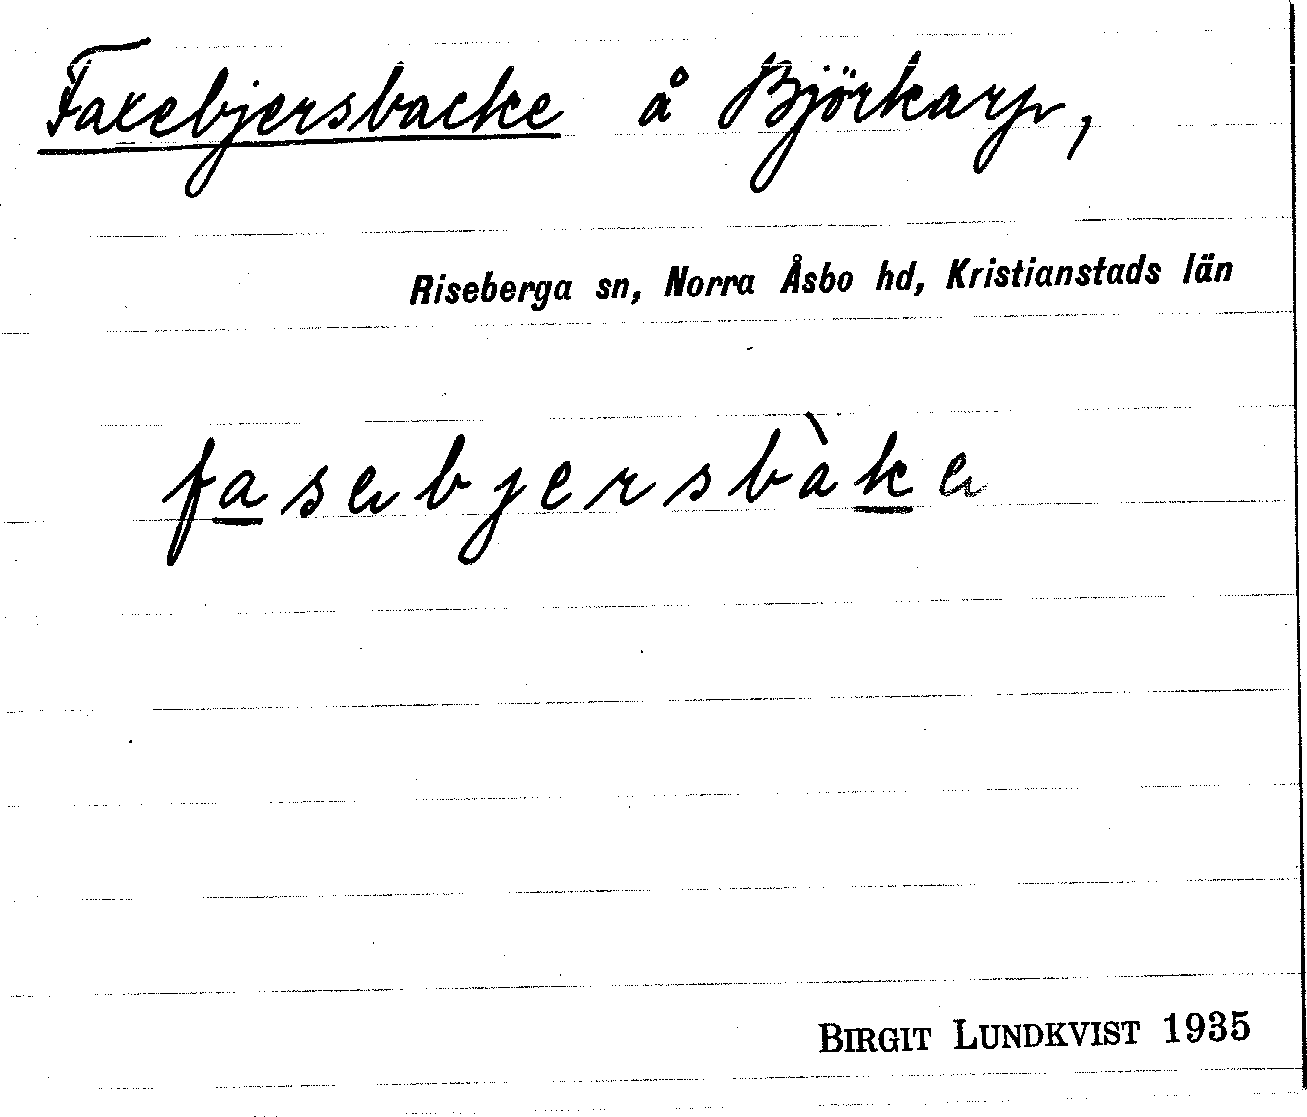 Faxebjersbacke å Björkarp,
Riseberga sn, Norra Åsbo hd, Kristianstads län
fasəbjersbàkə
BIRGIT LUNDKVIST 1935